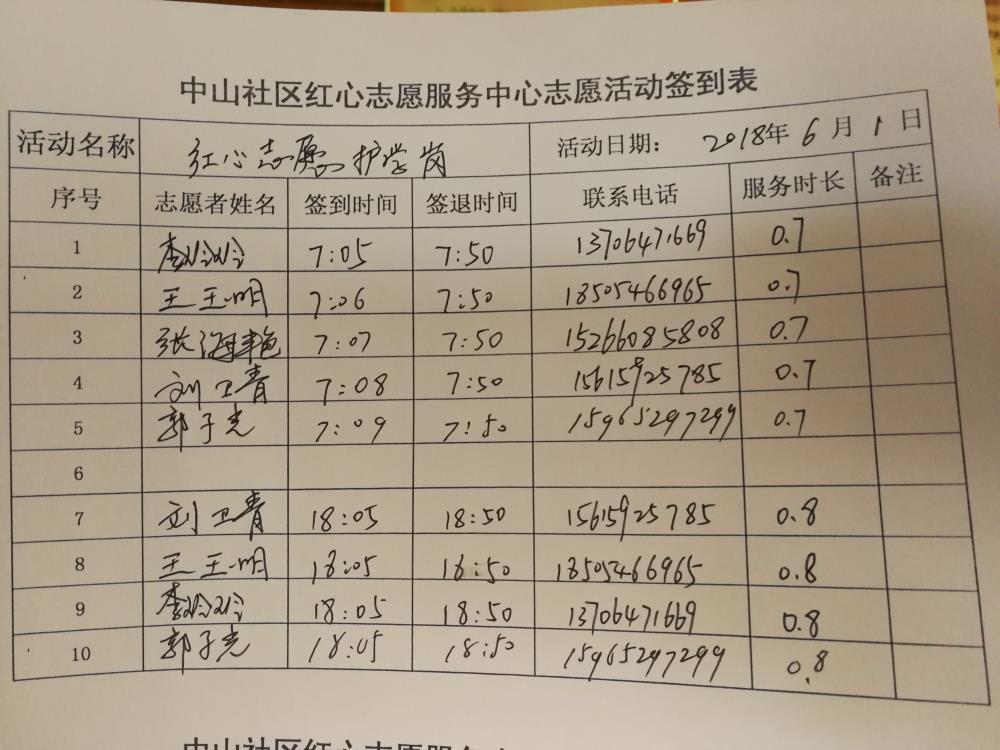 中山社区红心志愿服务中心志愿活动签到表
活动名称 红心志愿护学岗 活动日期: 2018年 6 月 1 日
序号 志愿者姓名 签到时间 签退时间 联系电话 服务时长 备注
1 李玲玲 7:05 7:50 13706471669 0.7
2 王玉明 7:06 7:50 18505466965 0.7
3 张海艳 7:07 7:50 15266085808 0.7
4 刘卫青 7:08 7:50 15615925785 0.7
5 郭子光 7:09 7:50 15965297299 0.7
6
7 刘卫青 18:05 18:50 15615925785 0.8
8 王玉明 18:05 18:50 18505466965 0.8
9 李玲玲 18:05 18:50 13706471669 0.8
10 郭子光 18:05 18:50 15965297299 0.8
中山社区红心志愿服务